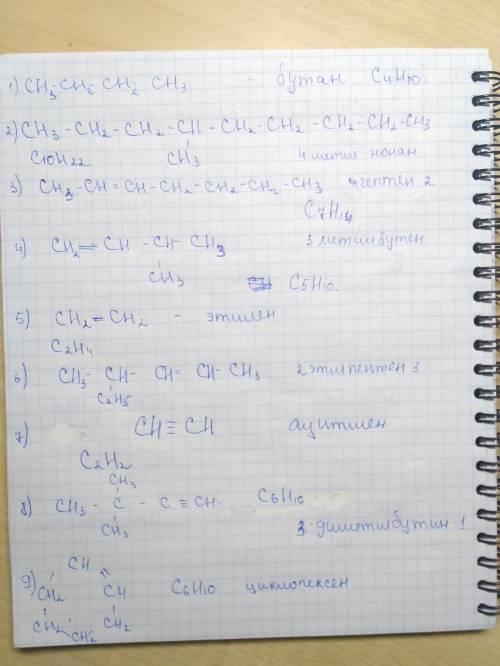 1) CH3-CH2-CH2-CH3 - бутан C4H10.
2) CH3-CH2-CH2-CH-CH2-CH2-CH2-CH2-CH3
C10H22 CH3 4 метил нонан
3) CH3-CH=CH-CH2-CH2-CH2-CH3 гептен 2
C7H14
4) CH2=CH-CH-CH3 3 метилбутен
CH3 C5H10.
5) CH2=CH2 - этилен
C2H4
6) CH3-CH-CH=CH-CH3 2 этилпентен 3
C2H5
7) CH≡CH ацитилен
C2H2
CH3
8) CH3-C-C≡CH. C6H10
CH3 3-диметилбутин-1
CH
9) CH2 =CH C6H10 циклогексен
CH2 CH2 CH2